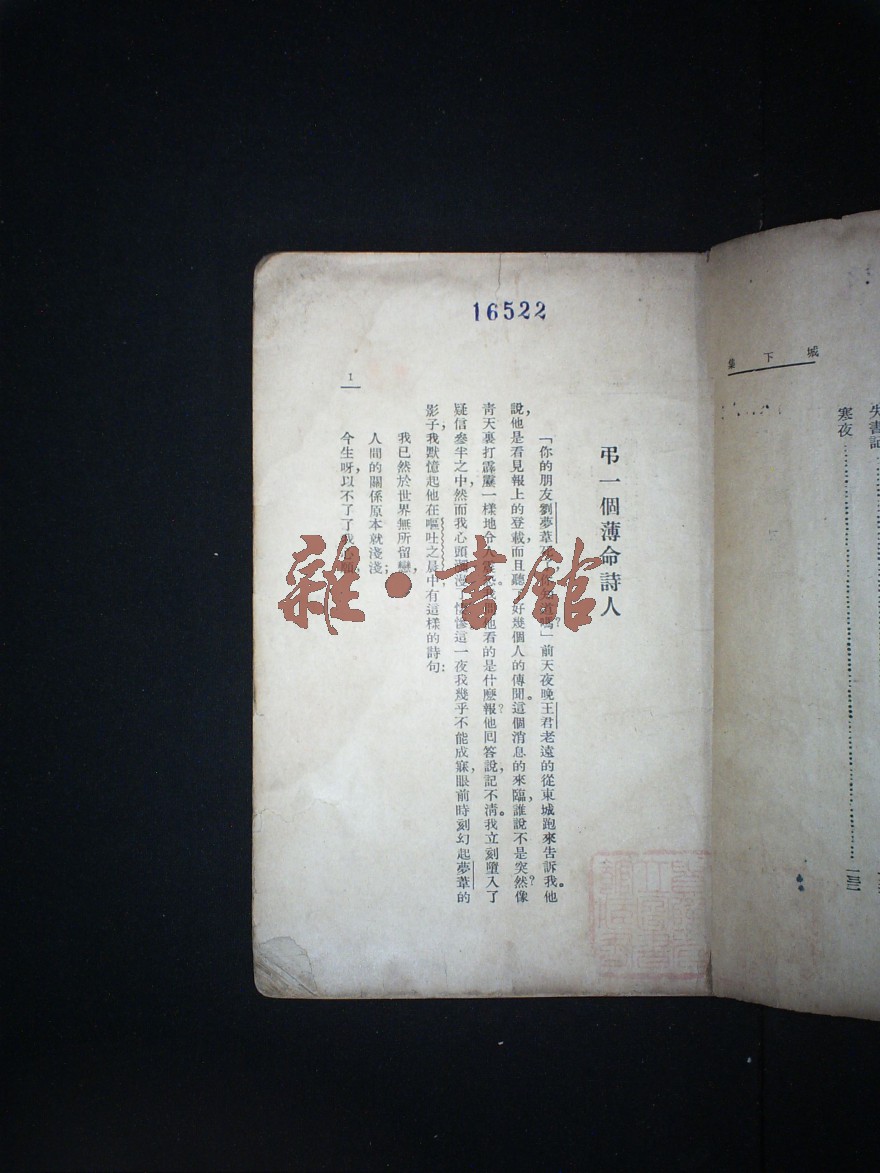 16522
城下集
失書記
寒夜
弔一個薄命詩人
「你的朋友劉夢葦嗎?」前天夜晚王君老遠的從東城跑來告訴我。他
說,他是看見報上的登載,而且聽了好幾個人的傳聞。這個消息的來臨,誰說不是突然像
青天裏打霹靂一樣地他看的是什麼報?他回答說,記不清。我立刻墮入了
疑信參半之中,然而我心頭這一夜我幾乎不能成寐,眼前時刻幻起夢葦的
影子,我默憶起他在嘔吐之晨中有這樣的詩句:
我已然於世界無所留戀,
人間的關係原本就淺淺;
今生呀,以不了了我
1
雜·書館